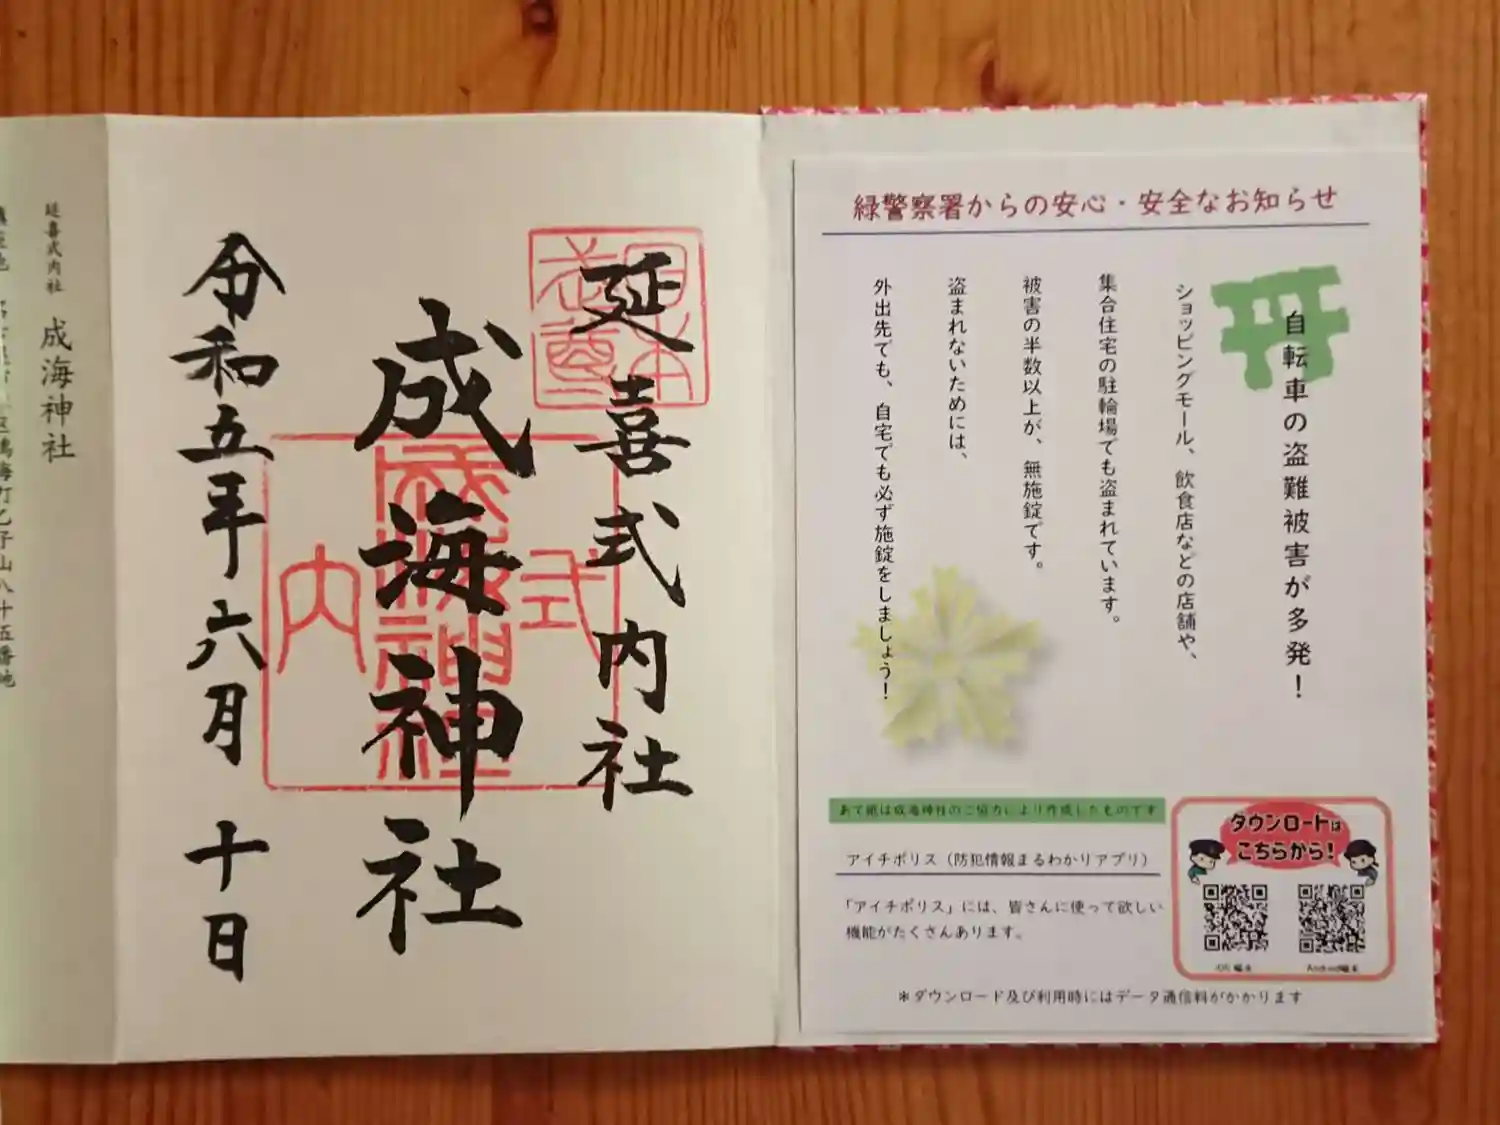 緑警察署からの安心・安全なお知らせ
自転車の盗難被害が多発！
ショッピングモール、飲食店などの店舗や、
集合住宅の駐輪場でも盗まれています。
被害の半数以上が、無施錠です。
盗まれないためには、
外出先でも、自宅でも必ず施錠をしましょう！
あて紙は成海神社のご協力により作成したものです
アイチポリス（防犯情報まるわかりアプリ）
「アイチポリス」には、皆さんに使って欲しい
機能がたくさんあります。
ダウンロードは
こちらから！
iOS端末
Android端末
＊ダウンロード及び利用時にはデータ通信料がかかります
延喜式内社
成海神社
令和五年六月十日
式
内
成海神社
延喜式内社 成海神社
海町乙子山八十五番地